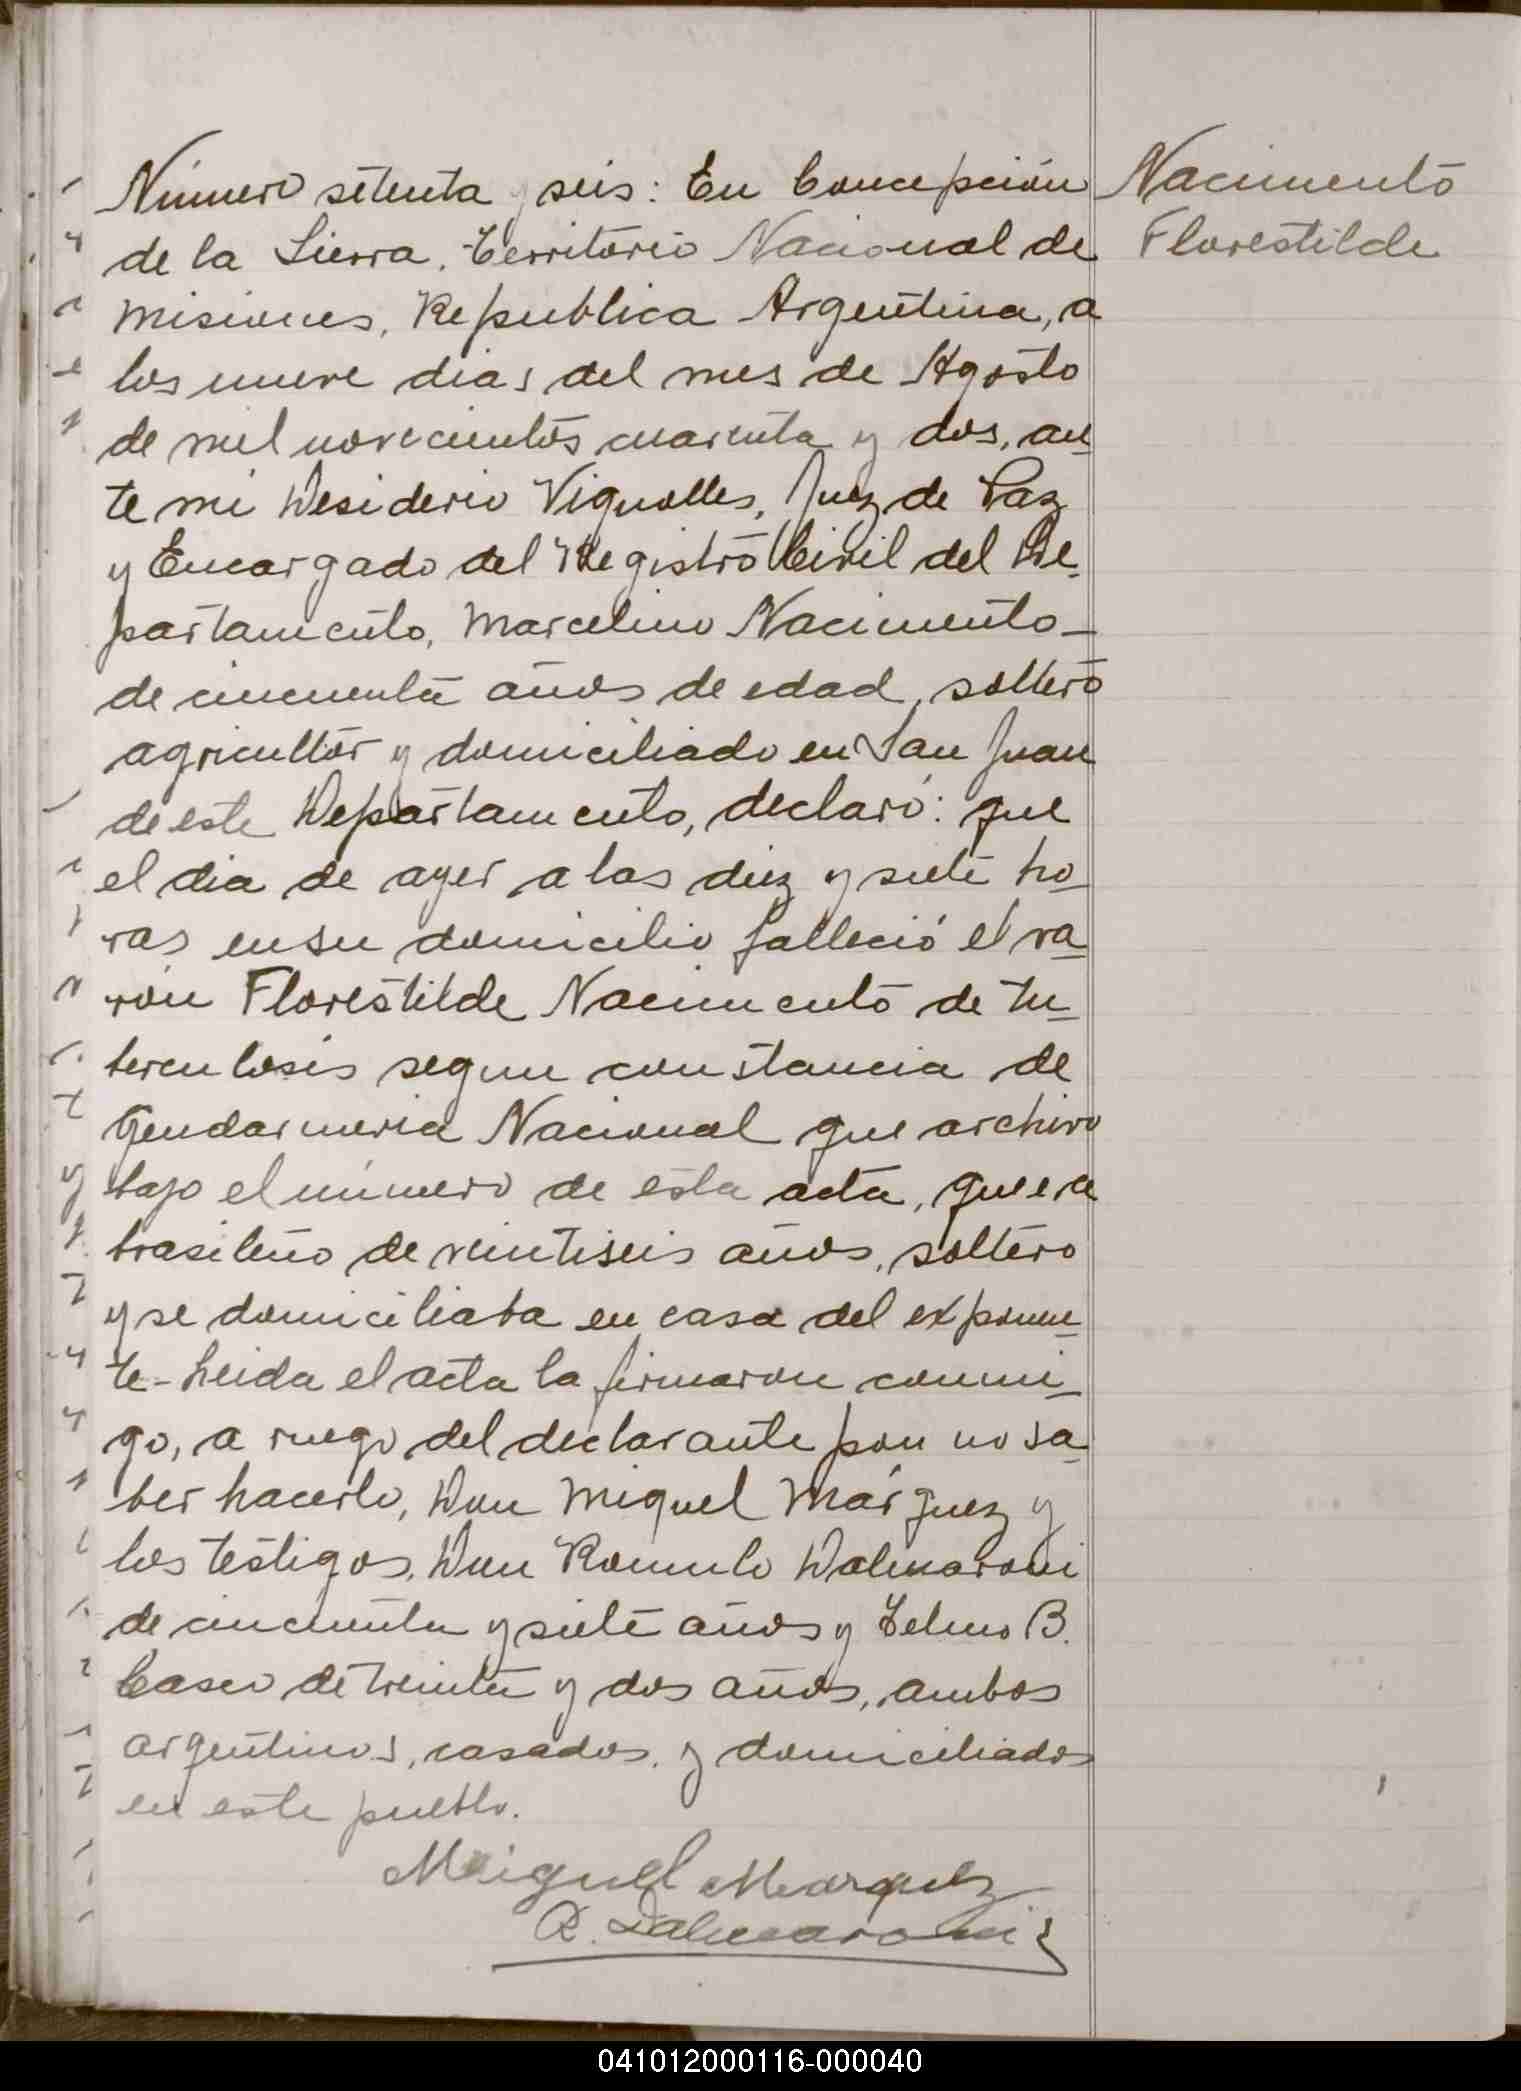 Nacimento
Florestilde
Número setenta y seis: En Concepción
de la Sierra, Territorio Nacional de
Misiones, Republica Argentina, a
los nueve dias del mes de Agosto
de mil novecientos cuarenta y dos, an_
te mi Desiderio Vignolles, Juez de Paz
y Encargado del Registro Civil del De_
partamento, Marcelino Nacimento_
de cincuenta años de edad, soltero
agricultor y domiciliado en San Juan
de este Departamento, declaró: que
el dia de ayer a las diez y siete ho_
ras en su domicilio falleció el va_
rón Florestilde Nacimento de tu_
berculosis segun constancia de
Gendarmeria Nacional que archivo
bajo el número de esta acta, que era
brasileño de veintiseis años, soltero
y se domiciliaba en casa del exponen_
te-Leida el acta la firmaron conmi_
go, a ruego del declarante por no sa_
ber hacerlo, Don Miguel Márquez y
los testigos, Don Romulo Dalmaroni
de cincuenta y siete años y Telmo B.
Casco de treinta y dos años, ambos
argentinos, casados, y domiciliados
en este pueblo.
Miguel Marquez
R. Dalmaroni
041012000116-000040